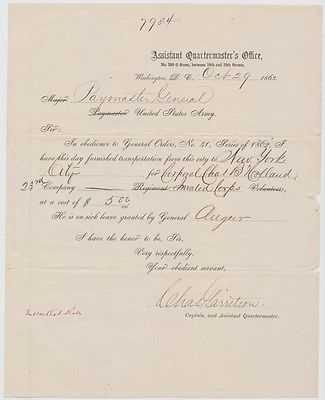 7984
Assistant Quartermaster's Office,
No. 309 G Street, between 18th and 19th Streets.
Washington, D. C. Oct 29 1863.
Major Paymaster General
Paymaster United States Army.
Sir:
In obedience to General Orders, No. 31, Series of 1862, I
have this day furnished transportation from this city to New York
City for Corporal Chas B Holland
23rd Company Regiment Invalid Corps Volunteers,
at a cost of $ 5.00
He is on sick leave granted by General Augur
I have the honor to be, Sir,
Very respectfully,
Your obedient servant.
Chas Garretson
Captain, and Assistant Quartermaster.